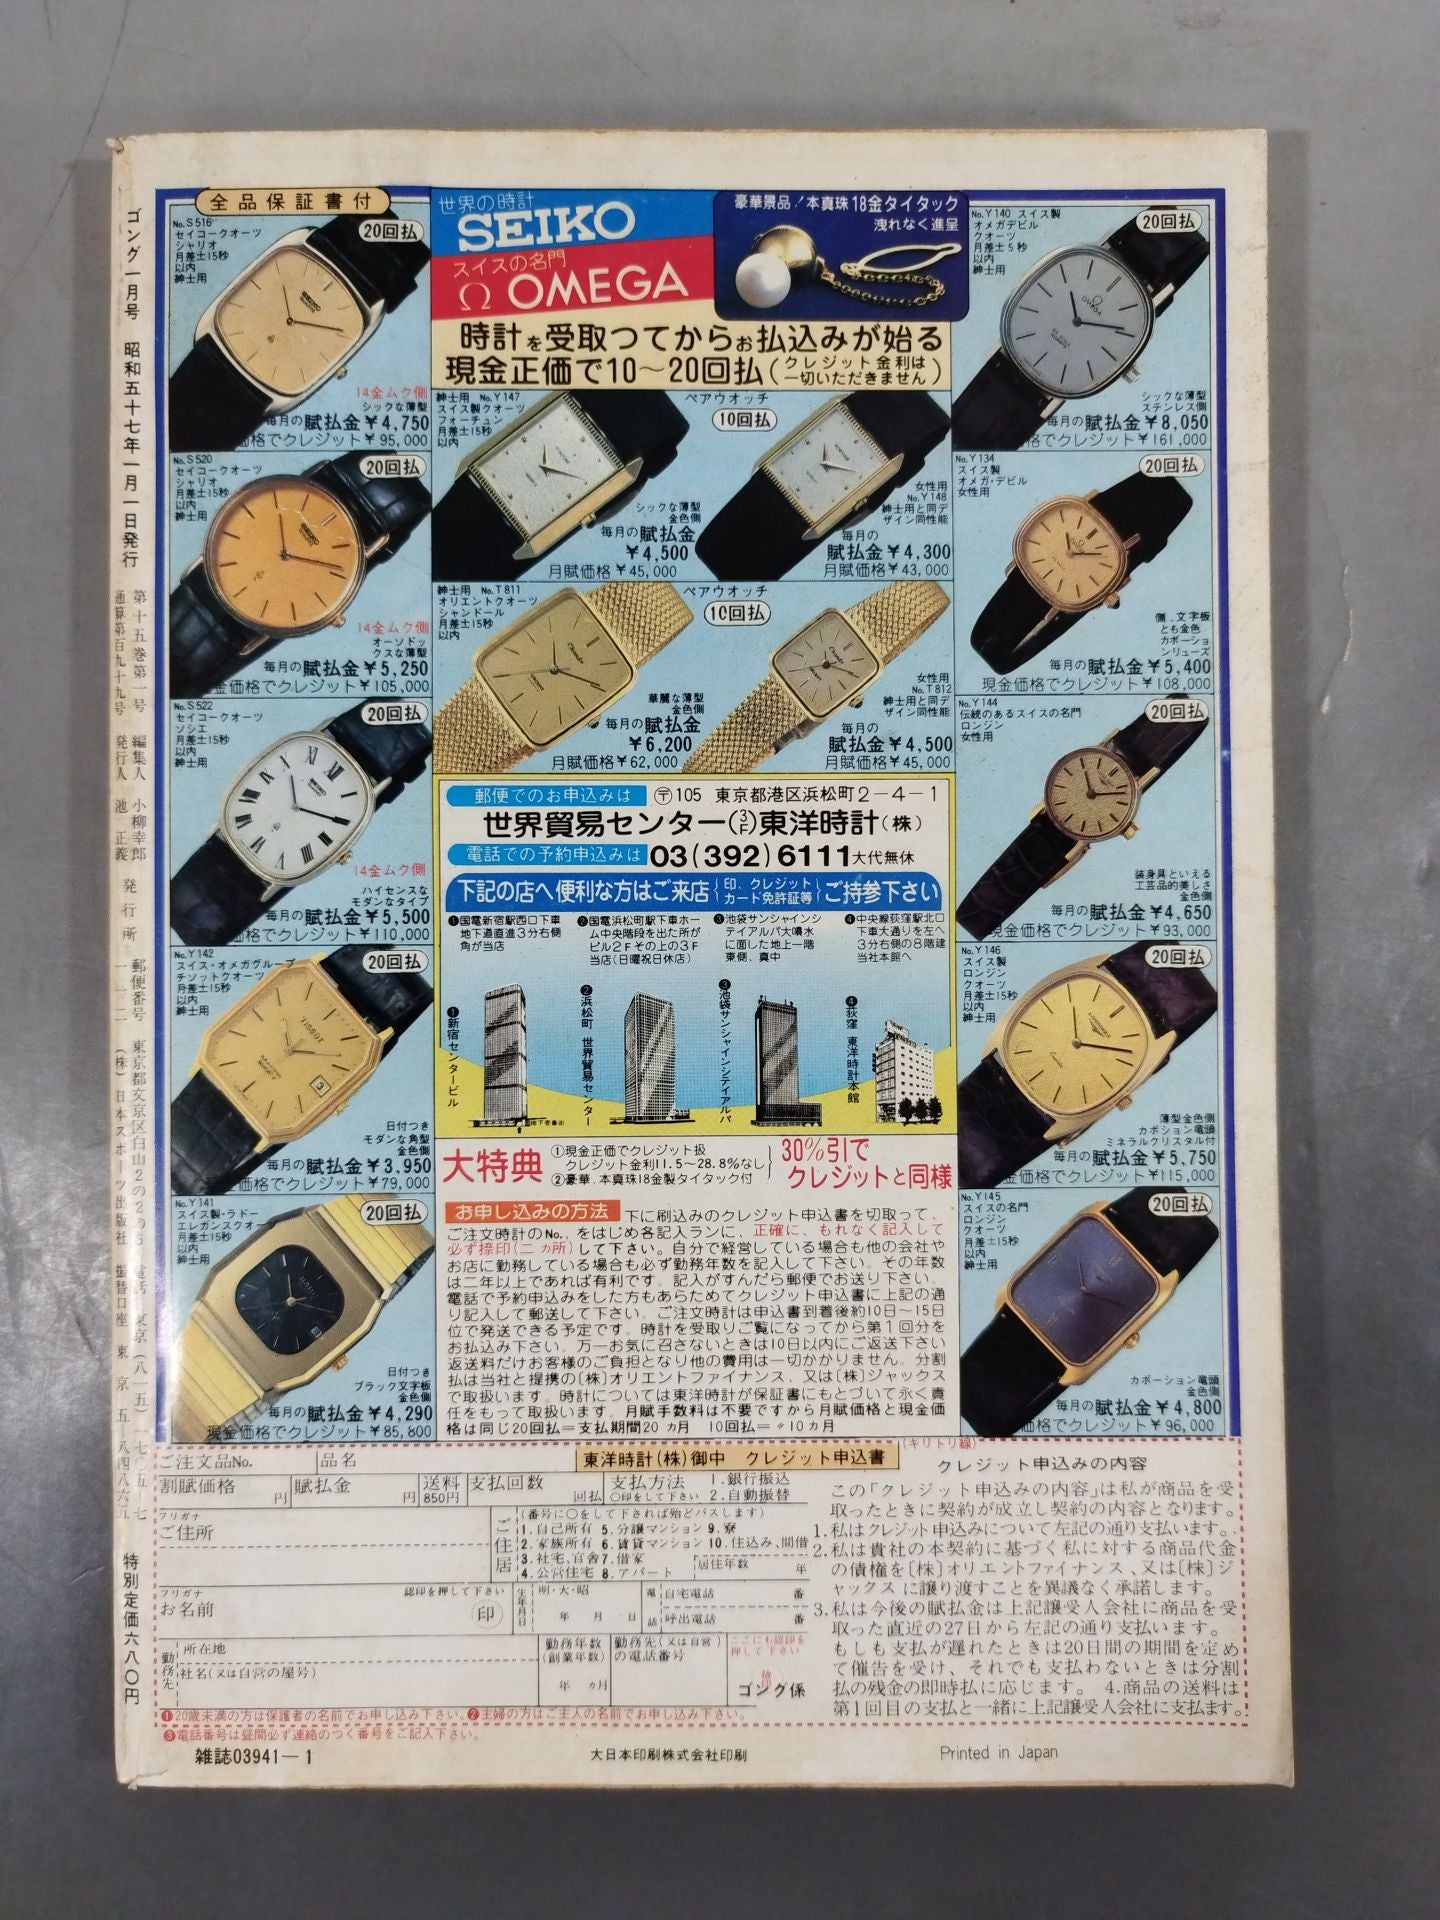 全品保証書付
世界の時計
SEIKO
スイスの名門
Ω OMEGA
豪華景品!本真珠18金タイタック
洩れなく進呈
時計を受取つてからお払込みが始る
現金正価で10〜20回払(クレジット金利は一切いただきません)
No.S516
セイコークオーツ
シャリオ
月差±15秒
以内
紳士用
20回払
14金ムク側
シックな薄型
毎月の賦払金¥4,750
価格でクレジット¥95,000
No.S520
セイコークオーツ
シャリオ
月差±15秒
以内
紳士用
20回払
14金ムク側
オーソドッ
クスな薄型
毎月の賦払金¥5,250
金価格でクレジット¥105,000
No.S522
セイコークオーツ
ソシエ
月差±15秒
以内
紳士用
20回払
14金ムク側
ハイセンスな
モダンなタイプ
毎月の賦払金¥5,500
金価格でクレジット¥110,000
No.Y142
スイス・オメガグループ
チソットクオーツ
月差±15秒
以内
紳士用
20回払
日付つき
モダンな角型
金色側
毎月の賦払金¥3,950
金価格でクレジット¥79,000
No.Y141
スイス製・ラドー
エレガンスクオーツ
月差±15秒
以内
紳士用
20回払
日付つき
ブラック文字板
金色側
毎月の賦払金¥4,290
現金価格でクレジット¥85,800
紳士用 No.Y147
スイス製クオーツ
フォーチュン
月差±15秒
以内
ペアウオッチ
10回払
シックな薄型
金色側
毎月の賦払金
¥4,500
月賦価格¥45,000
女性用
No.Y148
紳士用と同デ
ザイン同性能
毎月の
賦払金¥4,300
月賦価格¥43,000
紳士用 No.T811
オリエントクオーツ
シャンドール
月差±15秒
以内
ペアウオッチ
10回払
華麗な薄型
金色側
毎月の賦払金
¥6,200
月賦価格¥62,000
女性用
No.T812
紳士用と同デ
ザイン同性能
毎月の
賦払金¥4,500
月賦価格¥45,000
No.Y140 スイス製
オメガデビル
クオーツ
月差±5秒
以内
紳士用
20回払
シックな薄型
ステンレス側
毎月の賦払金¥8,050
現金価格でクレジット¥161,000
No.Y134
スイス製
オメガ・デビル
女性用
20回払
側、文字板
とも金色
カボーショ
ンリューズ
毎月の賦払金¥5,400
現金価格でクレジット¥108,000
No.Y144
伝統のあるスイスの名門
ロンジン
女性用
20回払
装身具といえる
工芸品的美しさ
金色側
毎月の賦払金¥4,650
現金価格でクレジット¥93,000
No.Y146
スイス製
ロンジン
クオーツ
月差±15秒
以内
紳士用
20回払
薄型金色側
カボション竜頭
ミネラルクリスタル付
毎月の賦払金¥5,750
金価格でクレジット¥115,000
No.Y145
スイスの名門
ロンジン
クオーツ
月差±15秒
以内
紳士用
20回払
カボーション竜頭
金色側
毎月の賦払金¥4,800
現金価格でクレジット¥96,000
郵便でのお申込みは 〒105 東京都港区浜松町2-4-1
世界貿易センター(3/F)東洋時計(株)
電話での予約申込みは 03(392)6111大代無休
下記の店へ便利な方はご来店{印、クレジットカード免許証等}ご持参下さい
❶国電新宿駅西口下車
地下道直進3分右側
角が当店
❷国電浜松町駅下車ホー
ム中央階段を出た所が
ビル2Fその上の3F
当店(日曜祝日休店)
❸池袋サンシャインシ
テイアルパ大噴水
に面した地上一階
東側、真中
❹中央線荻窪駅北口
下車大通りを左へ
3分右側の8階建
当社本館へ
❶新宿センタービル
❷浜松町 世界貿易センター
❸池袋サンシャインシテイアルパ
❹荻窪 東洋時計本館
地下巻番街
大特典
①現金正価でクレジット扱
クレジット金利11.5〜28.8%なし
②豪華、本真珠18金製タイタック付
30%引で
クレジットと同様
お申し込みの方法 下に刷込みのクレジット申込書を切取って、
ご注文時計のNo.、をはじめ各記入ランに、正確に、もれなく記入して
必ず捺印(二ヵ所)して下さい。自分で経営している場合も他の会社や
お店に勤務している場合も必ず勤務年数を記入して下さい。その年数
は二年以上であれば有利です。記入がすんだら郵便でお送り下さい。
電話で予約申込みをした方もあらためてクレジット申込書に上記の通
り記入して郵送して下さい。ご注文時計は申込書到着後約10日〜15日
位で発送できる予定です。時計を受取りご覧になってから第1回分を
お払込み下さい。万一お気に召さないときは10日以内にご返送下さい
返送料だけお客様のご負担となり他の費用は一切かかりません。分割
払は当社と提携の〔株〕オリエントファイナンス、又は〔株〕ジャックス
で取扱います。時計については東洋時計が保証書にもとづいて永く責
任をもって取扱います。月賦手数料は不要ですから月賦価格と現金価
格は同じ20回払=支払期間20ヵ月 10回払=〃10ヵ月
ご注文品No.
品名
東洋時計(株)御中 クレジット申込書
(キリトリ線)
割賦価格 円
賦払金 円
送料 850円
支払回数 回払
支払方法
○印をして下さい
1.銀行振込
2.自動振替
フリガナ
ご住所
ご住居
(番号に○をして下されば殆どパスします)
1.自己所有 5.分譲マンション 9.寮
2.家族所有 6.賃貸マンション 10.住込み、間借
3.社宅、官舎 7.借家
4.公営住宅 8.アパート
居住年数 年
フリガナ
お名前
認印を押して下さい
印
生年月日
明・大・昭
年 月 日
電話
自宅電話 番
呼出電話 番
勤務先
所在地
社名(又は自営の屋号)
勤務年数
(創業年数)
年 ヵ月
勤務先(又は自営)
の電話番号
ここにも認印を
押して下さい
ゴング係
❶20歳未満の方は保護者の名前でお申し込み下さい。❷主婦の方はご主人の名前でお申し込み下さい。
❸電話番号は昼間必ず連絡のつく番号をご記入下さい。
クレジット申込みの内容
この「クレジット申込みの内容」は私が商品を受
取ったときに契約が成立し契約の内容となります。
1.私はクレジット申込みについて左記の通り支払います。
2.私は貴社の本契約に基づく私に対する商品代金
の債権を〔株〕オリエントファイナンス、又は〔株〕ジ
ャックスに譲り渡すことを異議なく承諾します。
3.私は今後の賦払金は上記譲受人会社に商品を受
取った直近の27日から左記の通り支払います。
もしも支払が遅れたときは20日間の期間を定め
て催告を受け、それでも支払わないときは分割
払の残金の即時払に応じます。 4.商品の送料は
第1回目の支払と一緒に上記譲受人会社に支払ます。
雑誌03941-1
大日本印刷株式会社印刷
Printed in Japan
ゴング一月号 昭和五十七年一月一日発行
第十五巻第一号
通算第百九十九号
編集人 小柳幸郎
発行人 池 正義
発行所
郵便番号 一一二
東京都文京区白山2の2の6
(株)日本スポーツ出版社
電話 東京(八一五)一七〇五-七
振替口座 東京 五-八四八六五
特別定価六八〇円